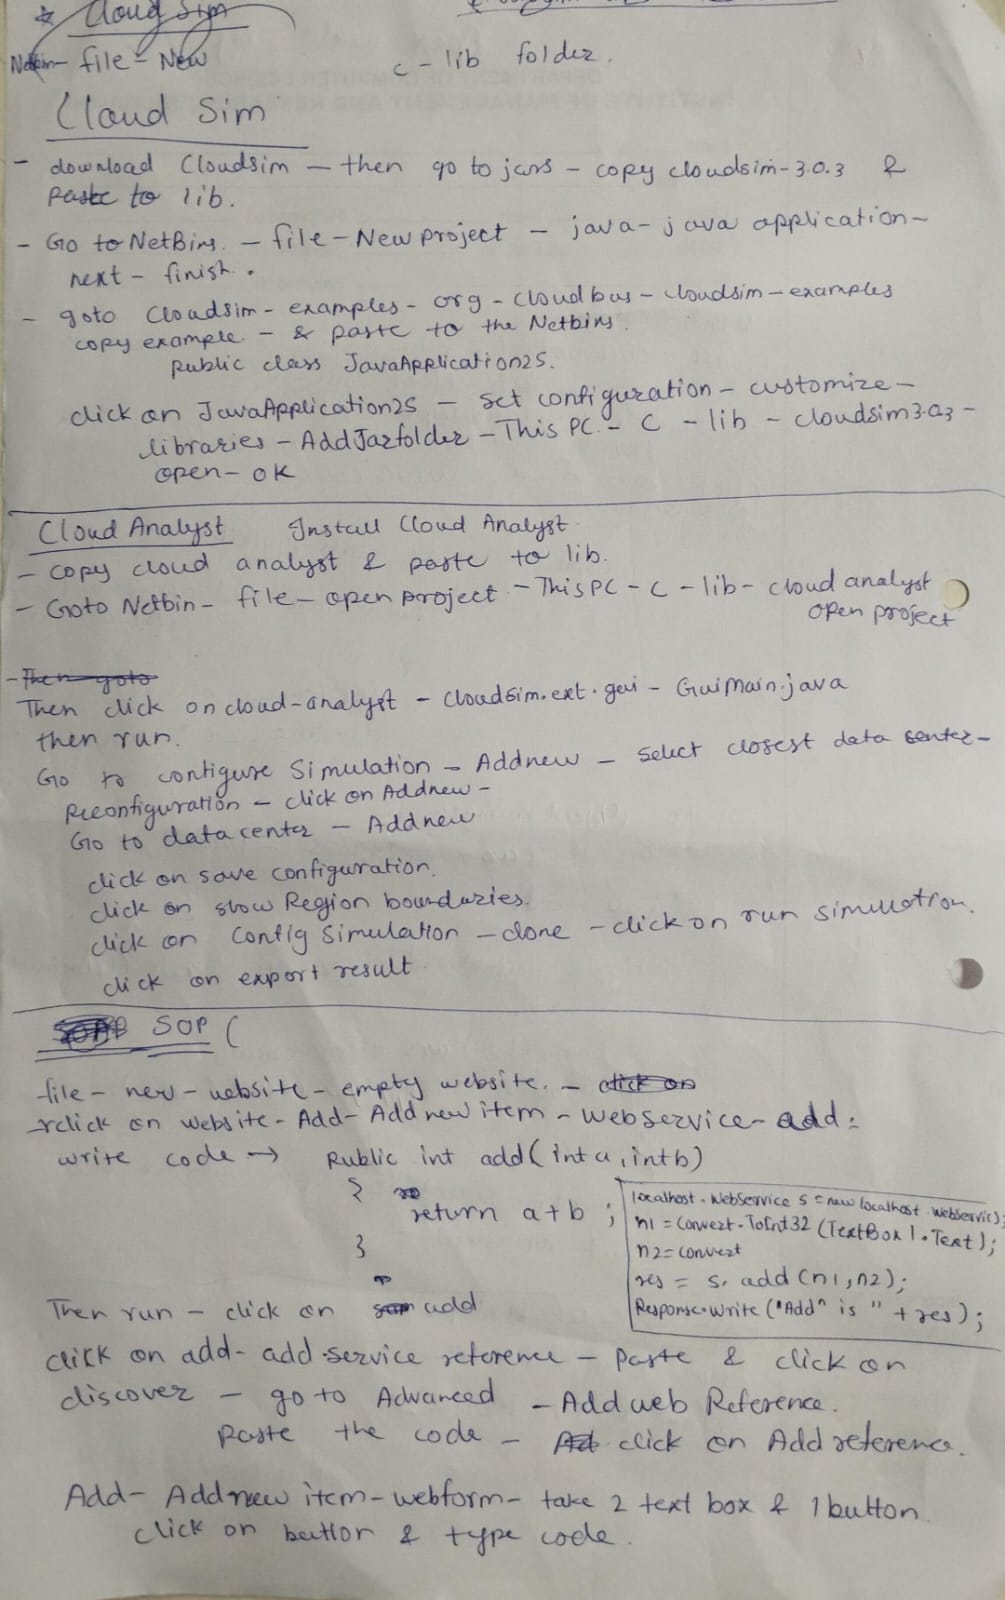 Cloud Sim
file - New
c - lib folder.
Cloud Sim
- download Cloudsim - then go to jars - copy cloudsim-3.0.3 &
Paste to lib.
- Go to NetBins. - file - New project - java - java application -
next - finish.
- goto Cloudsim - examples - org - cloudbus - cloudsim - examples
copy example. - & paste to the Netbins.
public class JavaApplication25.
click on JavaApplication25 - set configuration - customize -
libraries - Add Jar folder - This PC - C - lib - cloudsim 3.0.3 -
open - ok
Cloud Analyst Install Cloud Analyst.
- copy cloud analyst & paste to lib.
- Goto Netbin - file - open project. - This PC - C - lib - cloud analyst
open project
- Then goto
Then click on cloud-analyst - cloudsim.ext.gui - GuiMain.java
then run.
Go to configure Simulation - Addnew - select closest data center -
Reconfiguration - click on Addnew -
Go to data center - Addnew
click on save configuration.
click on show Region boundaries.
click on Config Simulation - done - click on run simulation.
click on export result.
SOP (
file - new - website - empty website. - click on
rclick on website - Add - Add new item - webservice - add.
write code → Public int add(int a, int b)
{
return a+b ;
}
localhost.WebService s = new localhost.webservic();
n1 = Convert.ToInt32 (TextBox1.Text);
n2 = convert
res = s.add (n1,n2);
Response.write ("Add^n is " + res);
Then run - click on add
click on add - add service reference - Paste & click on
discover - go to Advanced - Add web Reference.
Paste the code - click on Add reference.
Add - Add new item - webform - take 2 text box & 1 button.
click on button & type code.